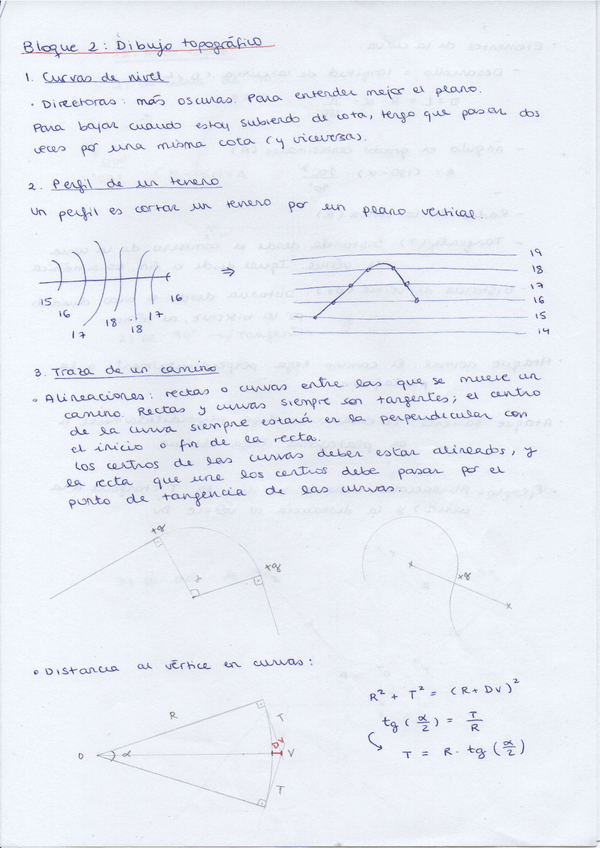 Bloque 2: Dibujo topográfico
1. Curvas de nivel
· Directoras: más oscuras. Para entender mejor el plano.
Para bajar cuando estoy subiendo de cota, tengo que pasar dos
veces por una misma cota (y viceversa).
2. Perfil de un terreno
Un perfil es cortar un terreno por un plano vertical.
15
16
17
18
18
17
16
⇒
19
18
17
16
15
14
3. Traza de un camino
· Alineaciones: rectas o curvas entre las que se mueve un
camino. Rectas y curvas siempre son tangentes; el centro
de la curva siempre estará en la perpendicular con
el inicio o fin de la recta.
Los centros de las curvas deben estar alineados, y
la recta que une los centros debe pasar por el
punto de tangencia de las curvas.
+q
+q
+q
· Distancia al vértice en curvas:
R
T
O
α
V
T
R² + T² = (R + DV)²
tg (α/2) = T/R
T = R · tg (α/2)